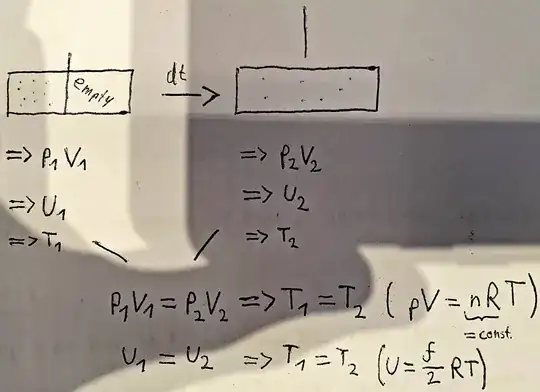 empty
dt
=> p₁V₁
=> p₂V₂
=> U₁
=> U₂
=> T₁
=> T₂
p₁V₁ = p₂V₂ => T₁ = T₂ (pV = nRT)
= const.
U₁ = U₂ => T₁ = T₂ (U = f/2 RT)